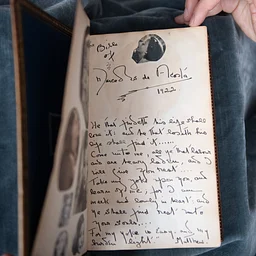 Bible
of
Mercedes de Acosta
1922
He that findeth his life shall
lose it: and he that loseth his
life shall find it......
Come unto me, all ye that labour
and are heavy laden, and I
will give you rest....
Take my yoke upon you, and
learn of me, for I am
meek and lowly in heart: and
ye shall find rest unto
your souls....
For my yoke is easy, and my
burden "light" Matthew